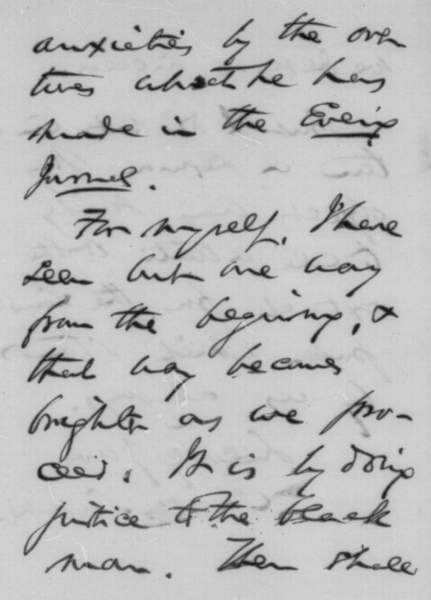 anxieties by the over
tures which he has
made in the Evening
Journal.
For myself, I have
seen but one way
from the beginning, &
that way becomes
brighter as we pro-
ceed. It is by doing
justice to the black
man. Then shall